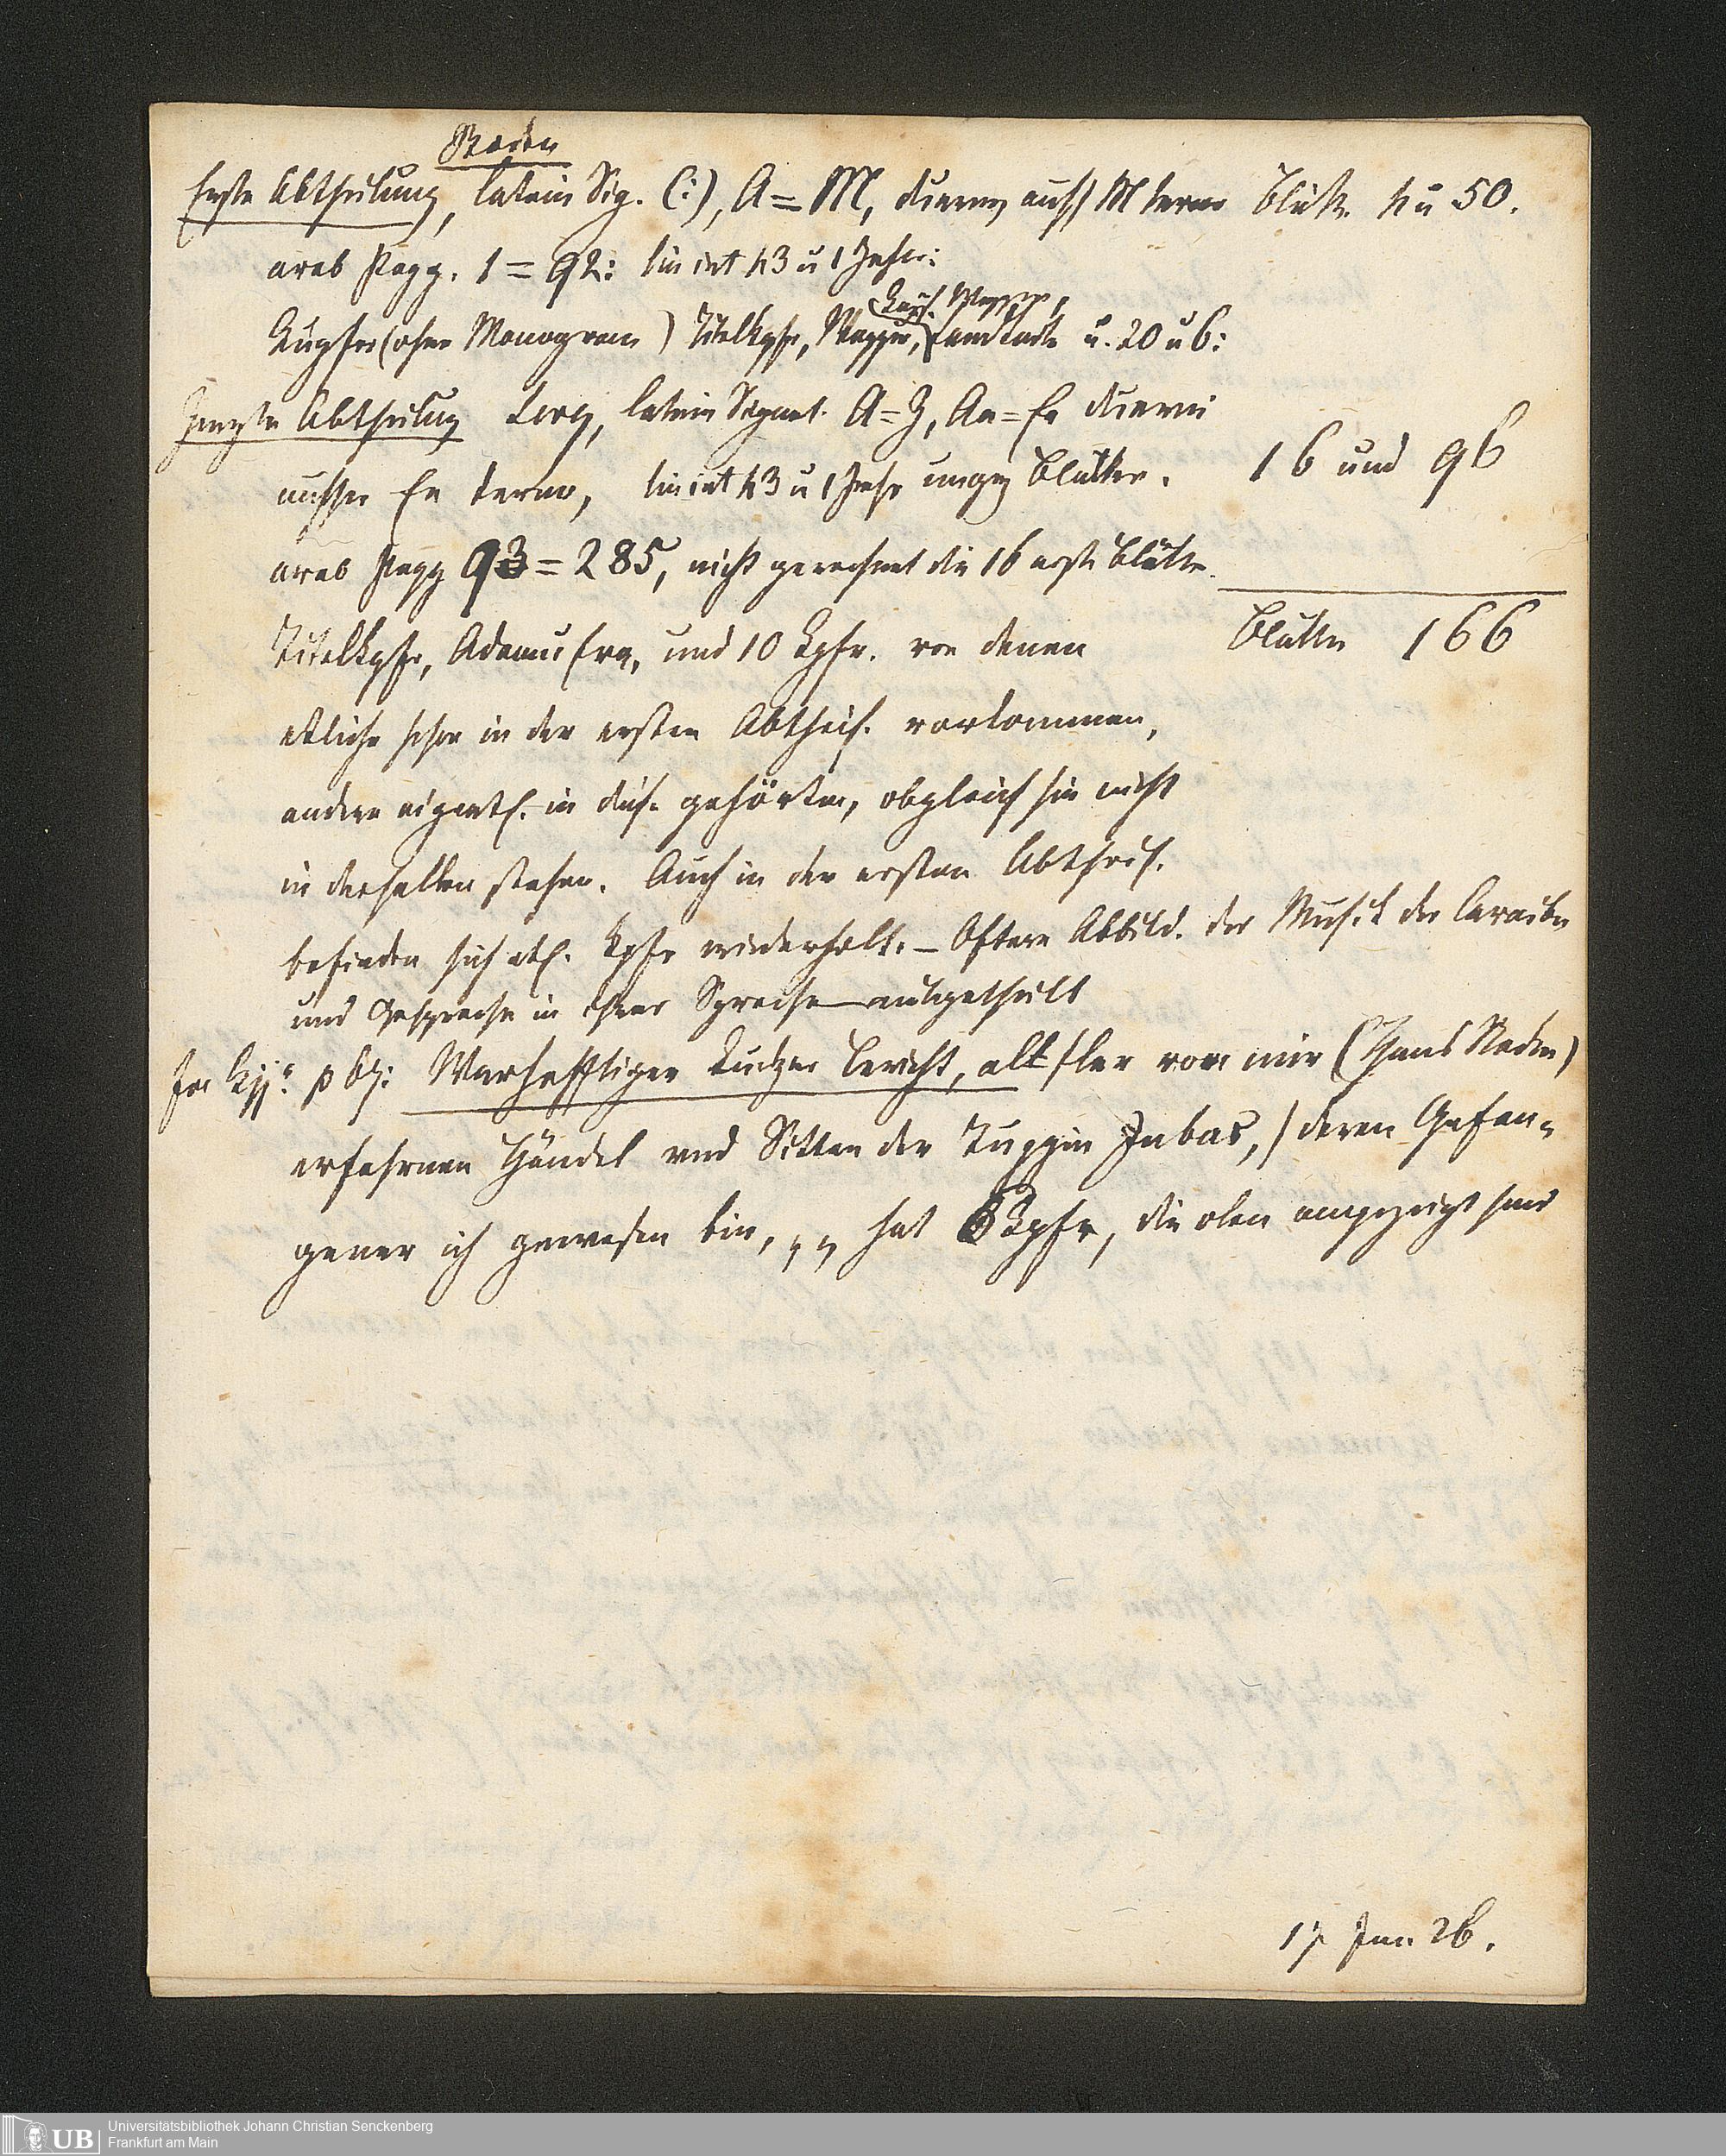 Staden
Erste Abtheilung, latein Sig. (:), A = M, duerny auss M terno Blätt. 4 u 50.
arab Pagg. 1 = 92: lin int 43 u 1 Zeh:
Kupfer (ohne Monogram) Titelkpfr, Wappen, Landkarte u. 20 u 6:
Kays. Wappen,
Zweyte Abtheilung Lery, latein Signat. A = Z, Aa = Ee duerni
ausser Ee terno, lin int 43 u 1 Zeh ungez Blätter. 16 und 96
arab Pagg 93 = 285, nicht gerechnet die 16 erste Blätter.
Titelkpfr, Adam u Eva, und 10 Kpfr. von denen Blätter 166
etliche schon in der ersten Abtheil. vorkommen,
andere eigentl. in diese gehörten, obgleich sie nicht
in derselben stehen. Auch in der ersten Abtheil.
befinden sich etl. Kpfr wiederholt. – Oftere Abbild. der Musik der Caraiben
und Gespräche in ihrer Sprache mitgetheilt
p 67: Warhafftiger kurtzer Bericht, aller von mir (Hans Staden)
erfahrnen Händel vnd Sitten der Tuppin Inbas, / deren Gefan-
gener ich gewesen bin, „ „ hat 6 Kpfr, die oben angezeigt sind
17 Jun 26.
Universitätsbibliothek Johann Christian Senckenberg
Frankfurt am Main
UB